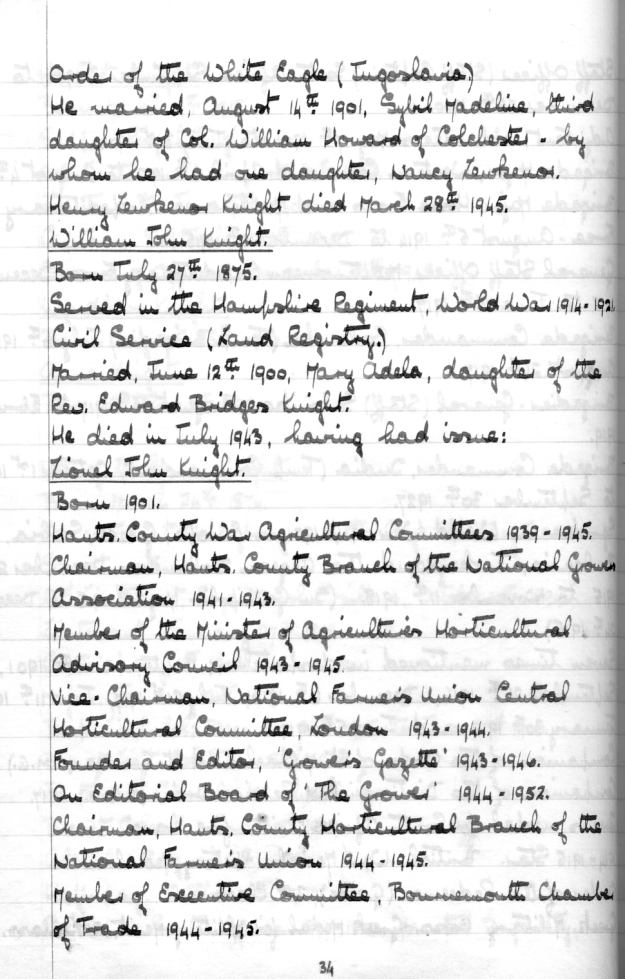 Order of the White Eagle (Jugoslavia)
He married, August 14th 1901, Sybil Madeline, third
daughter of Col. William Howard of Colchester - by
whom he had one daughter, Nancy Lewkenor.
Henry Lewkenor Knight died March 28th 1945.
William John Knight.
Born July 27th 1875.
Served in the Hampshire Regiment, World War 1914-1921
Civil Service (Land Registry.)
Married, June 12th 1900, Mary Adela, daughter of the
Rev. Edward Bridges Knight.
He died in July 1943, having had issue:
Lionel John Knight.
Born 1901.
Hants. County War Agricultural Committees 1939-1945.
Chairman, Hants. County Branch of the National Growers
Association 1941-1943.
Member of the Minister of Agriculture's Horticultural
Advisory Council 1943-1945.
Vice-Chairman, National Farmer's Union Central
Horticultural Committee, London 1943-1944.
Founder and Editor, 'Grower's Gazette' 1943-1946.
On Editorial Board of 'The Grower' 1944-1952.
Chairman, Hants. County Horticultural Branch of the
National Farmer's Union 1944-1945.
Member of Executive Committee, Bournemouth Chamber
of Trade 1944-1945.
34